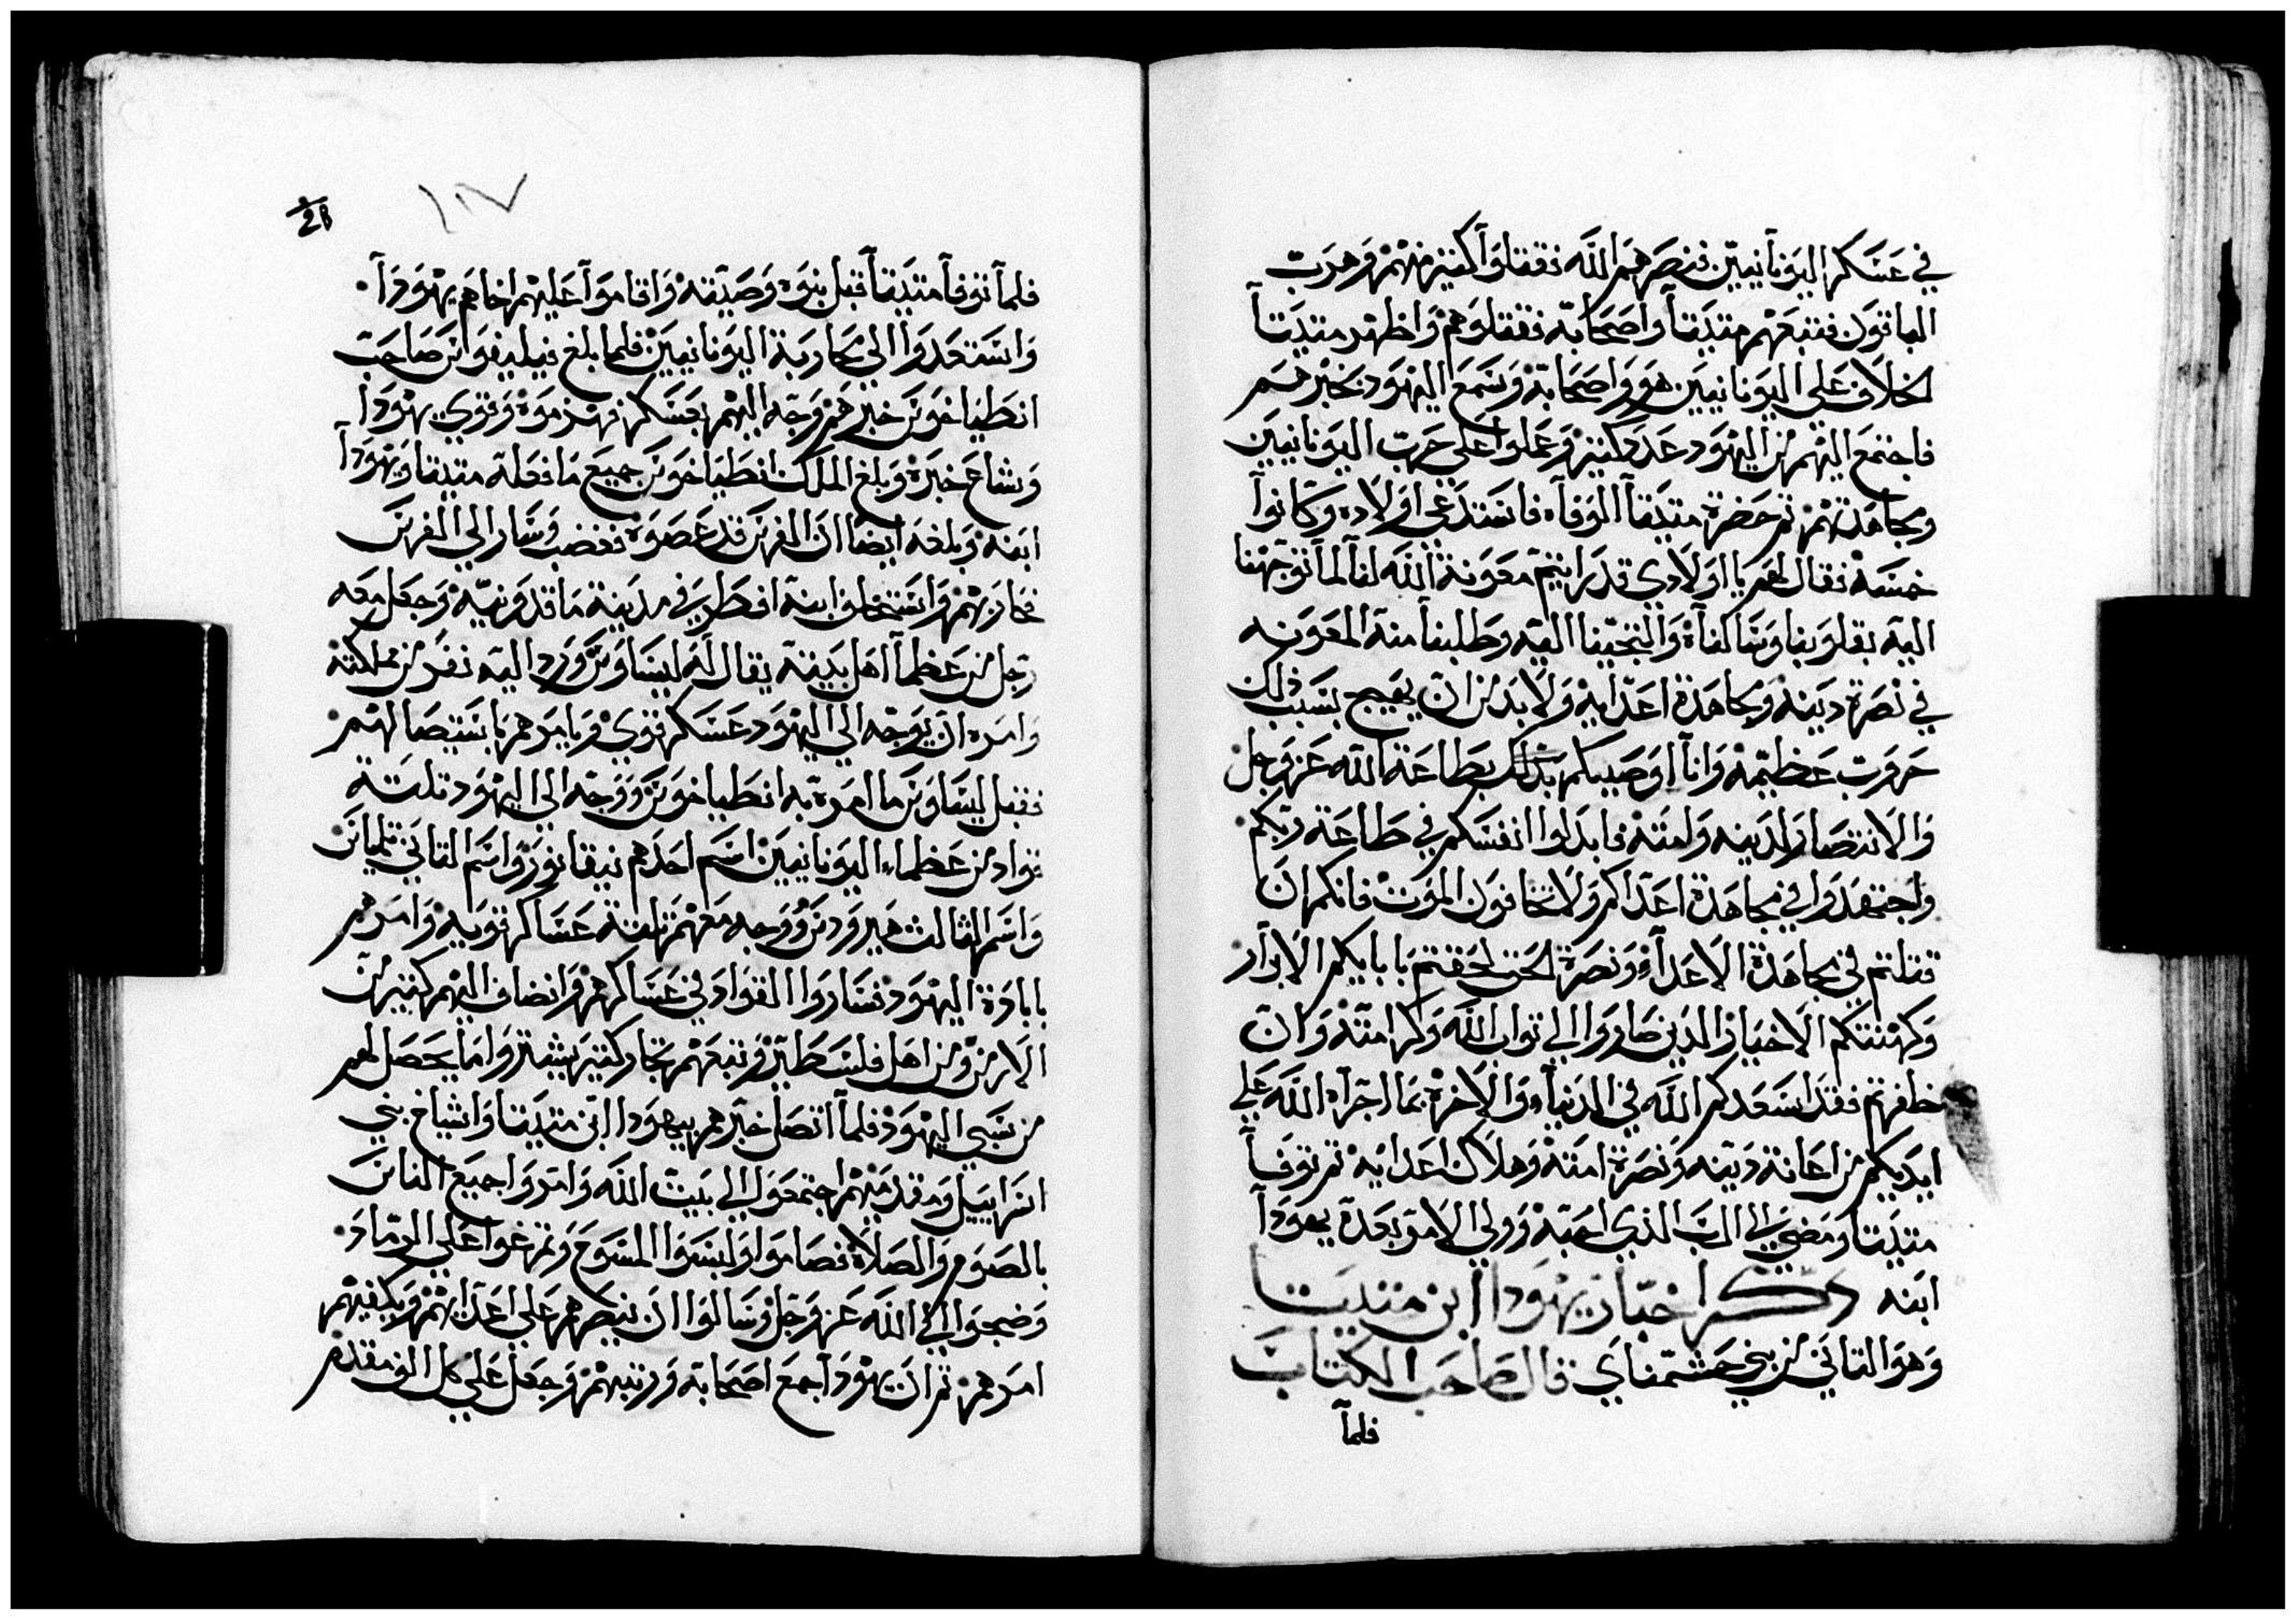 في عسكر اليونانيين فنصرهم الله فقتلوا كثير منهم وهرب
الباقون فتبعهم متيتا واصحابه فقتلوهم واظهر متيتا
الخلاف علي اليونانيين هو واصحابه وسمع اليهود بخبرهم
فاجتمع اليهم من اليهود عدد كثير وعملوا علي حرب اليونانيين
ومجاهدتهم ثم حضرة متيتا الوفاه فاستدعي اولاده وكانوا
خمسة فقال لهم يا اولادي قد رايتم معونة الله لنا لما توجهنا
اليه بقلوبنا وسالناه والتجينا اليه وطلبنا منه المعونه
في نصرة دينه ومجاهدة اعدايه ولا بد من ان يهيج بسبب ذلك
حروب عظيمه وانا اوصيكم بذلك بطاعة الله عز وجل
والانتصار لدينه ولامته فابدلوا انفسكم في طاعة ربكم
واجتهدوا في مجاهدة اعداكم ولا تخافون الموت فانكم ان
قتلتم في مجاهدة الاعداء ونصرة الحق لحقتم بابايكم الابرار
وكهنتكم الاخيار الدين صاروا الي تواب الله وكرامته وان
ظفرتم فقد اسعدكم الله في الدنيا والاخرة بما اجراه الله علي
ايديكم من اعانة دينه ونصرة امته وهلاك اعدايه ثم توفا
متيتا ومضي الي الرب الذي احبه وولي الامر بعده يهودا
ابنه ذكر اخبار يهودا ابن متيتا
وهو التاني من بني حشمناي قال صاحب الكتاب
فلما
211
١١٧
فلما توفا متيتا قبل بنوه وصيته واقاموا عليهم اخاهم يهودا
واستعدوا الي محاربة اليونانيين فلما بلغ فيليفوس صاحب
انطياخوس خبرهم وجه اليهم بعسكر فهزموه وقوي يهودا
وشاع خبره وبلغ الملك انطياخوس جميع ما فعله متيتا ويهودا
ابنه وبلغه ايضا ان الفرس قد عصوه فغضب وسار الي الفرس
فحاربهم واستخلف ابنه افطر في مدينة ماقدونيه وجعل معه
رجل من عظما اهل بيته يقال له ليساوس وورد اليه نفر من مملكته
وامره ان يوجه الي اليهود عسكر قوي ويامرهم باستيصالهم
ففعل ليساوس ما امره به انطياخوس ووجه الي اليهود تلتة
قواد من عظماء اليونانيين اسم احدهم نيقانور واسم التاني تلماس
واسم الثالث هيرودس ووجه معهم تلتة عساكر قويه وامرهم
بابادة اليهود فساروا القواد في عساكرهم وانضاف اليهم كثير من
الارمن ومن اهل فلسطين وتبعهم تجار كثير يشترو اما يحصل لهم
من سبي اليهود فلما اتصل خبرهم بيهودا ابن متيتا واشياخ بني
اسراييل ومقدميهم اجتمعوا الي بيت الله وامروا جميع الناس
بالصوم والصلاة فصاموا ولبسوا المسوح وتمرغوا علي الرماد
وضجوا الي الله عز وجل وسالوا ان ينصرهم علي اعدايهم ويكفيهم
امرهم ثم ان يهودا جمع اصحابه ورتبهم وجعل علي كل الف مقدم